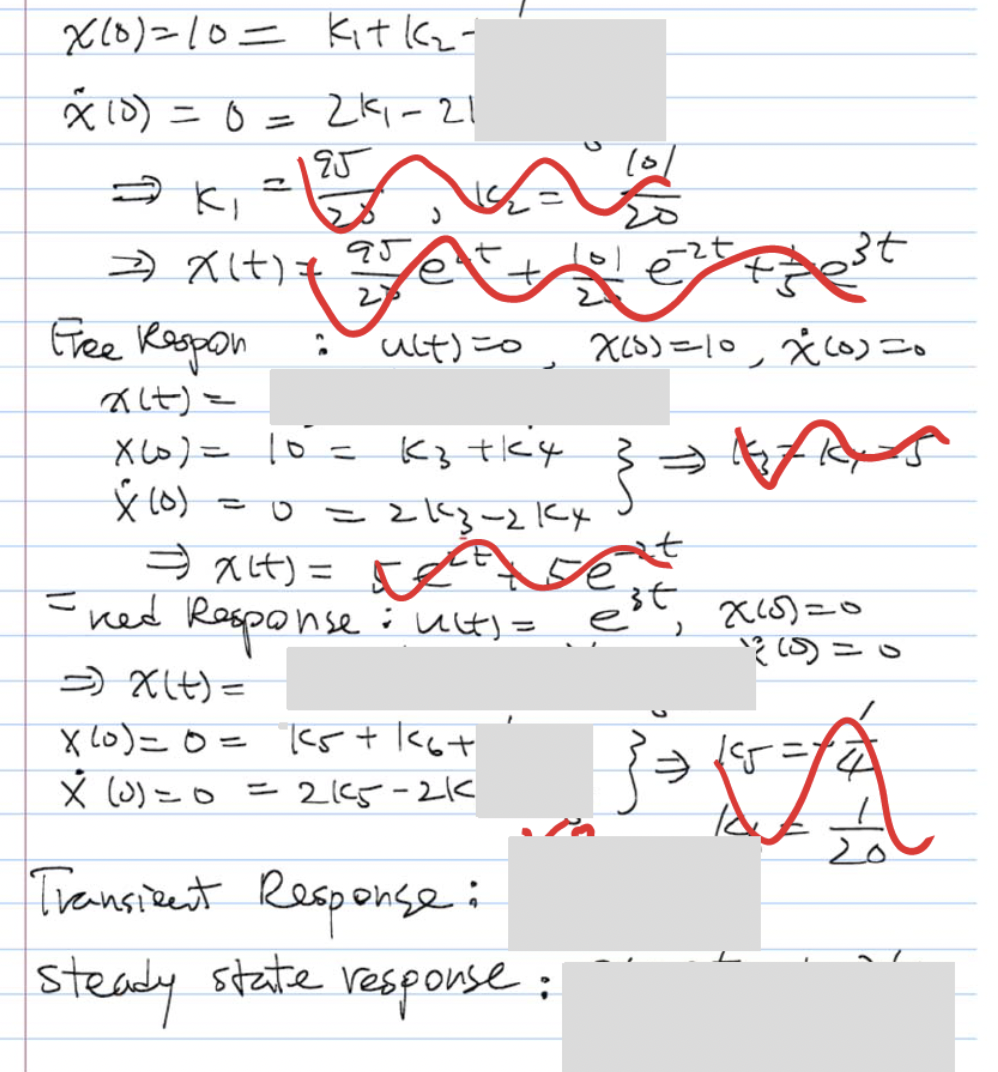 x(0)=10= K₁+K₂-
ẋ(0) = 0 = 2K₁-2
⇒ K₁ = 95/20, K₂ = 101/20
⇒ x(t)= 95/20 e^2t + 101/20 e^-2t + 1/5 e^3t
Free Respon : u(t)=0, x(0)=10, ẋ(0)=0
x(t)=
x(0)= 10 = K₃+K₄ } ⇒ K₃=K₄=5
ẋ(0) = 0 = 2K₃-2K₄
⇒ x(t)= 5e^2t + 5e^-2t
ced Response : u(t)= e^3t, x(0)=0
ẋ(0)=0
⇒ x(t)=
x(0)=0= K₅+K₆+ } ⇒ K₅=-1/4
ẋ(0)=0 = 2K₅-2K
K₆= 1/20
Transient Response :
steady state response :